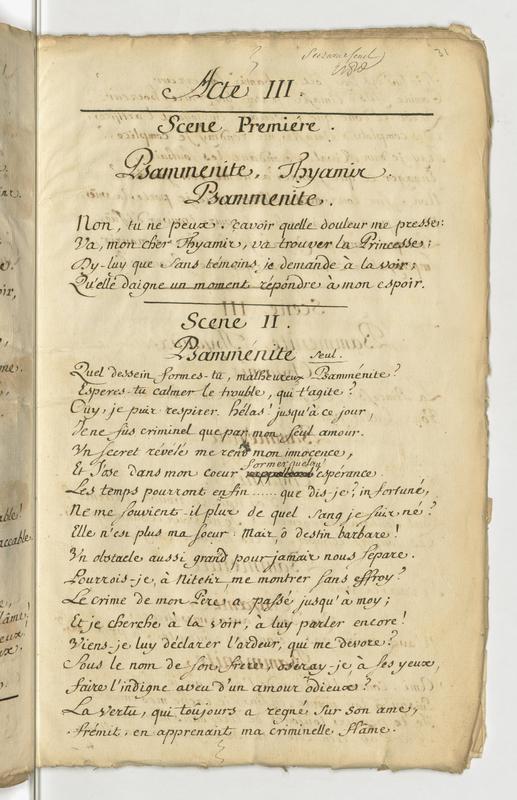 31
Acte III.
Scene Premiére.
Psammenite, Thyamir.
Psammenite.
Non, tu ne peux sçavoir quelle douleur me presse:
Va, mon cher Thyamir, va trouver la Princesse;
Dy-luy que sans témoins je demande à la voir;
Qu'elle daigne un moment répondre à mon espoir.
Scene II.
Psamménite seul.
Quel dessein formes-tu, malheureux Psamménite?
Esperes-tu calmer le trouble, qui t'agite?
Ouy, je puis respirer. hélas! jusqu'à ce jour,
Je ne fus criminel que par mon seul amour.
Un secret révélé me rend mon innocence,
former quelqu'
Et j'ose dans mon coeur espérance.
Les temps pourront enfin ...... que dis je? infortuné,
Ne me souvient-il plus de quel sang je suis né?
Elle n'est plus ma soeur: Mais, ô destin barbare!
Un obstacle aussi grand pour jamais nous separe.
Pourrois-je, à Nitetis me montrer sans effroy?
Le crime de mon Pere a passé jusqu'à moy;
Et je cherche à la voir, à luy parler encore!
Viens-je luy déclarer l'ardeur, qui me devore?
Sous le nom de son frere, oseray-je à ses yeux,
faire l'indigne aveu d'un amour odieux?
La vertu, qui toujours a regné sur son ame,
frémit, en apprenant ma criminelle flâme.